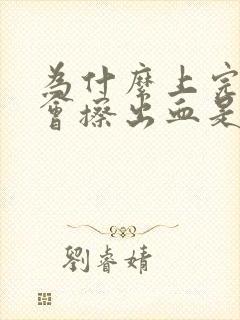 為什麼上完
會擦出血是
劉睿婧